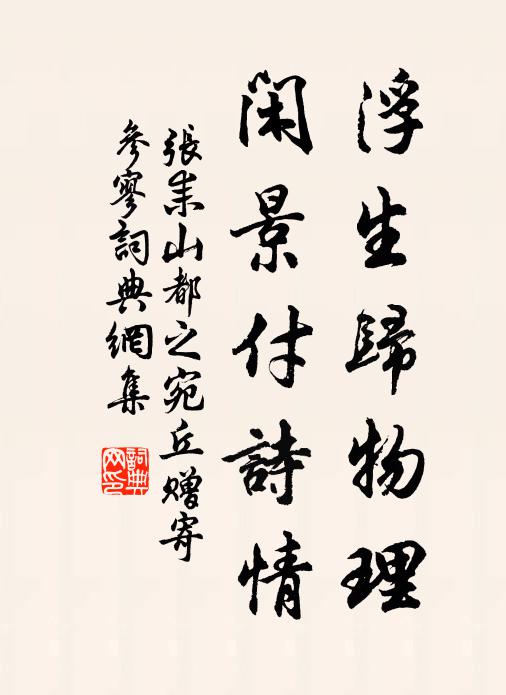 浮生歸物理
閑景付詩情
張耒山都之宛丘贈寄
參寥詞典網集
詞典
网印